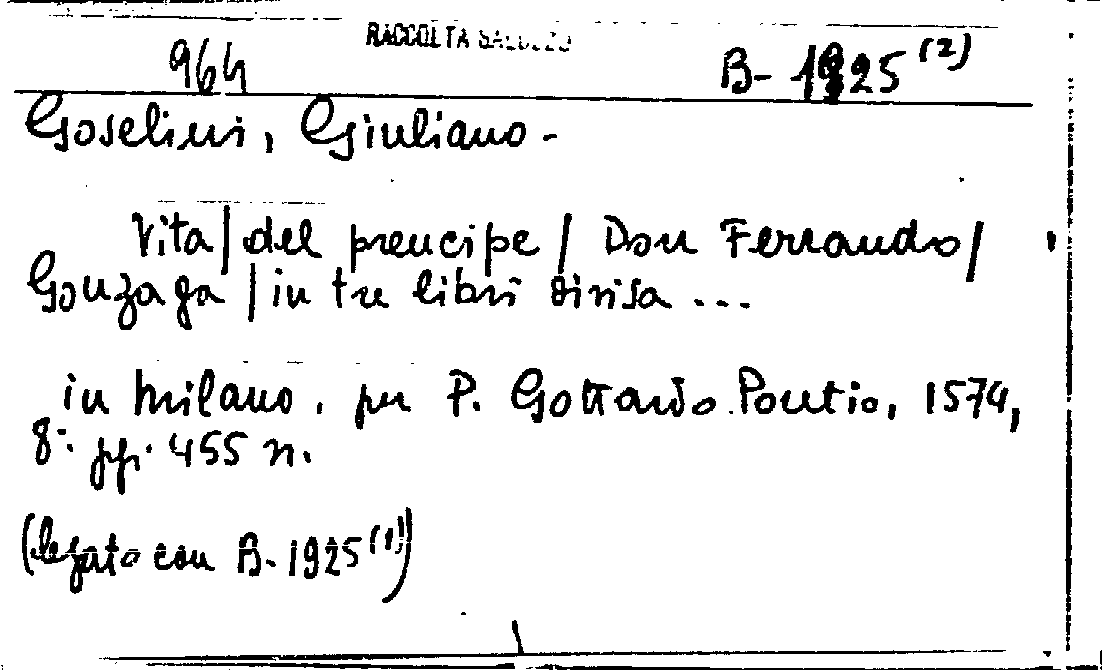 RACCOLTA SALUZZO
964 B-1925 (2)
Goselini, Giuliano-
Vita/del prencipe/Don Ferrando/
Gonzaga/in tre libri divisa...
in Milano, per P. Gottardo Pontio, 1574,
8: pp. 455 n.
(legato con B. 1925 (1))